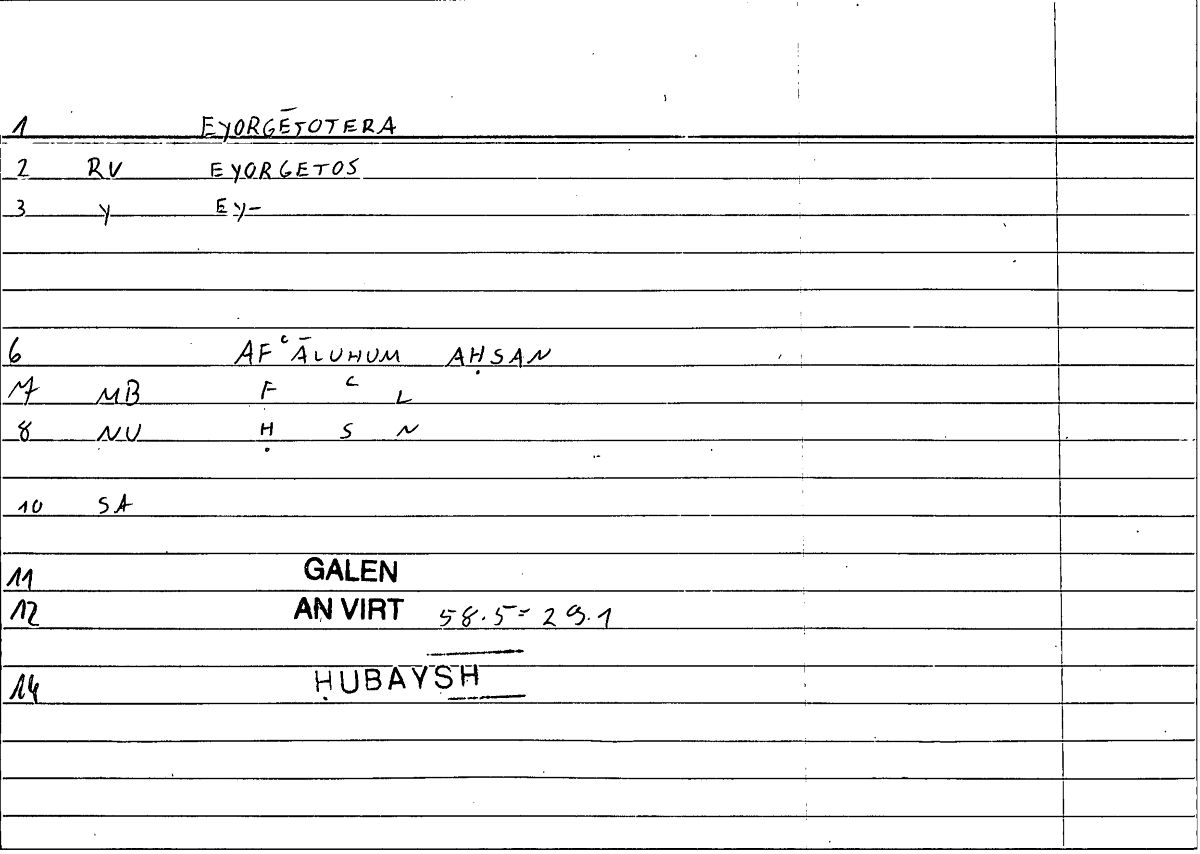 1 EYORGĒTOTERA
2 RV EYORGETOS
3 Y EY-
6 AFʿĀLUHUM AḤSAN
7 MB F ʿ L
8 NU Ḥ S N
10 SA
11 GALEN
12 AN VIRT 58.5 = 29.1
14 ḤUBAYSH